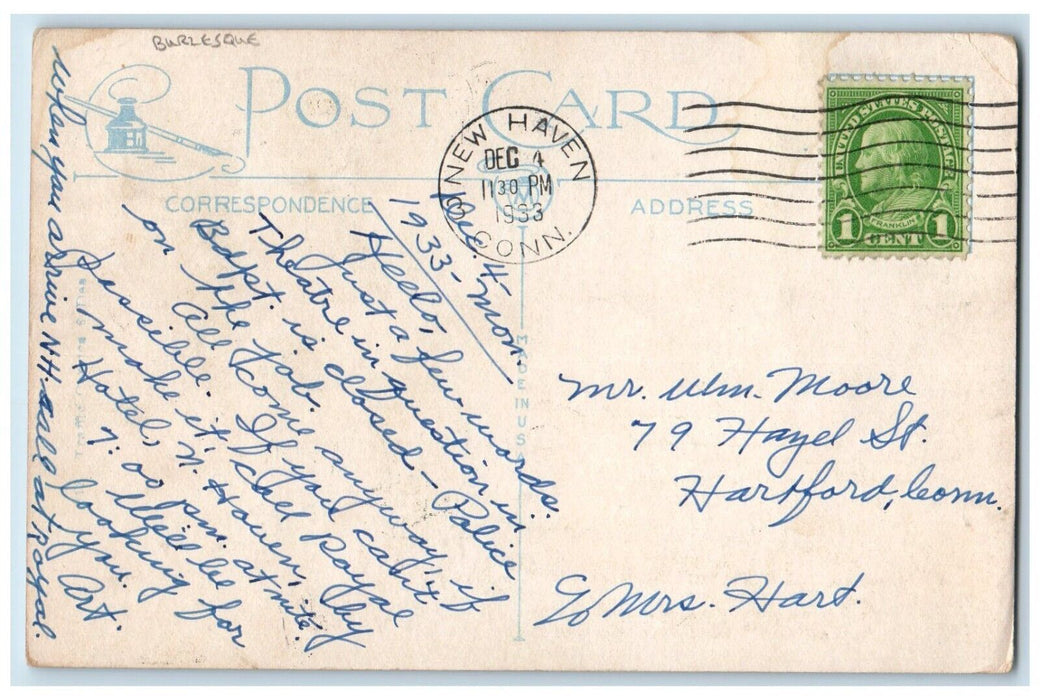 BURLESQUE
POST CARD
CORRESPONDENCE
ADDRESS
NEW HAVEN
DEC 4
11 30 PM
1933
CONN.
UNITED STATES POSTAGE
FRANKLIN
1 CENT 1
MADE IN USA
Dec. 4 - Mon.
1933 -
Hello,
Just a few words.
Theatre in question in
Bdpt. is closed - Police
on the job.
All come anyway if
possible. If you can't
make it, call Royal
Hotel, N. Haven, by
7:00 pm. at nite.
Will be
looking for
you.
Art.
When you arrive N.H. call at Royal.
Mr. Wm. Moore
79 Hazel St.
Hartford, Conn.
c/o Mrs. Hart.